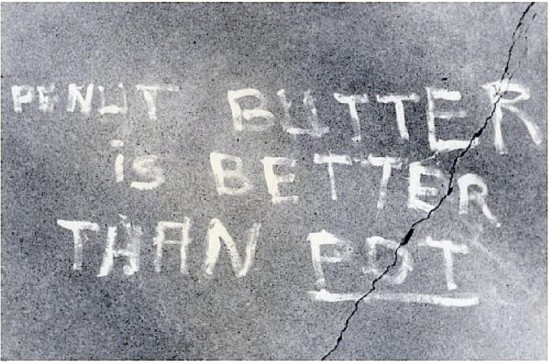 PENUT BUTTER
is BETTER
THAN POT